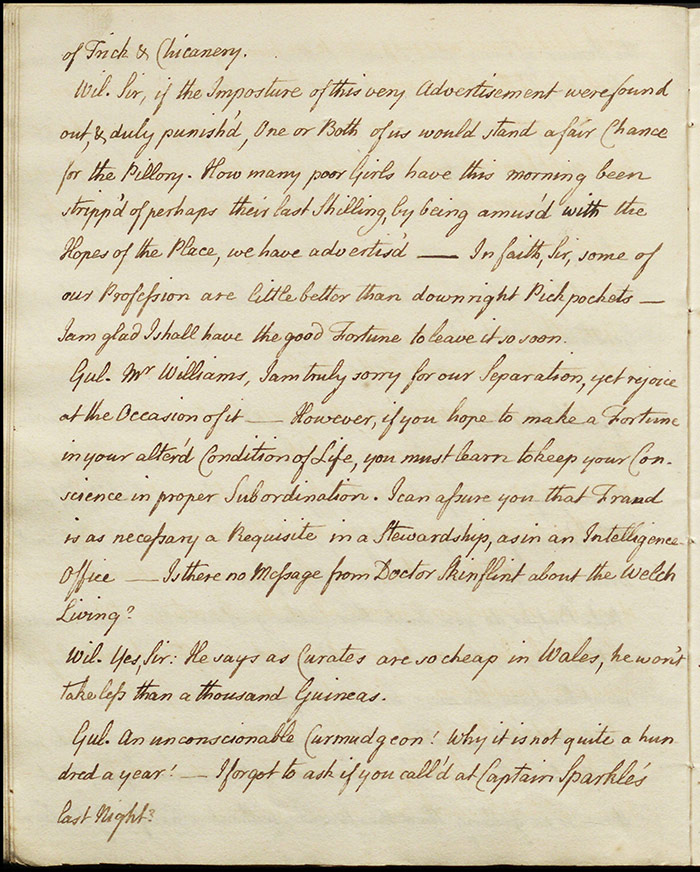 of Trick & Chicanery.
Wil. Sir, if the Imposture of this very Advertisement were found
out, & duly punish'd, One or Both of us would stand a fair Chance
for the Pillory. How many poor Girls have this morning been
stripp'd of perhaps their last Shilling, by being amus'd with the
Hopes of the Place, we have advertis'd — In faith, Sir, some of
our Profeſsion are little better than downright Pickpockets —
I am glad I shall have the good Fortune to leave it so soon.
Gul. Mr Williams, I am truly sorry for our Separation, yet rejoice
at the Occasion of it — However, if you hope to make a Fortune
in your alter'd Condition of Life, you must learn to keep your Con-
science in proper Subordination. I can aſsure you that Fraud
is as neceſsary a Requisite in a Stewardship, as in an Intelligence
Office — Is there no Meſsage from Doctor Skinflint about the Welch
Living?
Wil. Yes, Sir: He says as Curates are so cheap in Wales, he won't
take leſs than a thousand Guineas.
Gul. An unconscionable Curmudgeon! Why it is not quite a hun
dred a year! — I forgot to ask if you call'd at Captain Sparkle's
last Night?